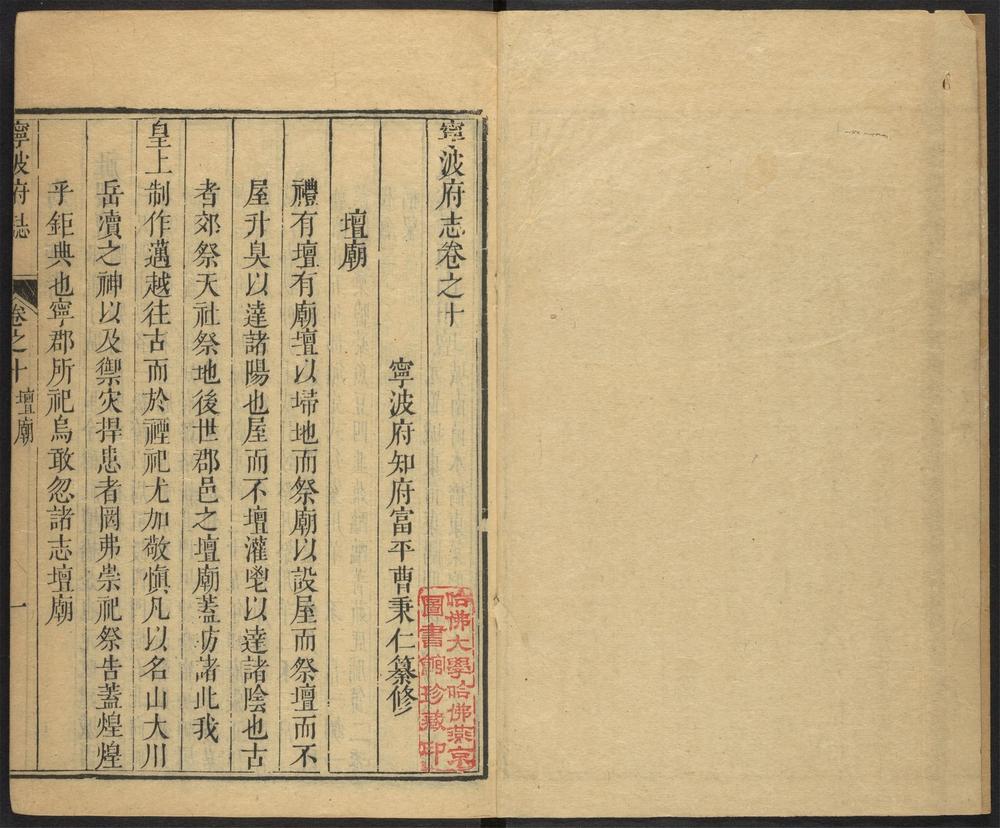 寧波府志卷之十
寧波府知府富平曹秉仁纂修
壇廟
禮有壇有廟壇以埽地而祭廟以設屋而祭壇而不
屋升臭以達諸陽也屋而不壇灌鬯以達諸陰也古
者郊祭天社祭地後世郡邑之壇廟蓋昉諸此我
皇上制作邁越往古而於禋祀尤加敬慎凡以名山大川
岳瀆之神以及禦灾捍患者罔弗崇祀祭告蓋煌煌
乎鉅典也寧郡所祀烏敢忽諸志壇廟
寧波府志
卷之十
壇廟
一
哈佛大學哈佛燕京
圖書館珍藏印